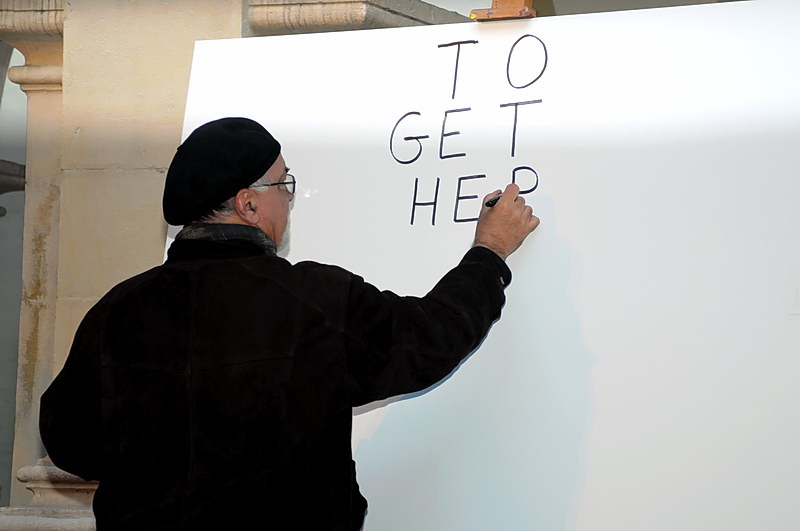 TO
GET
HER